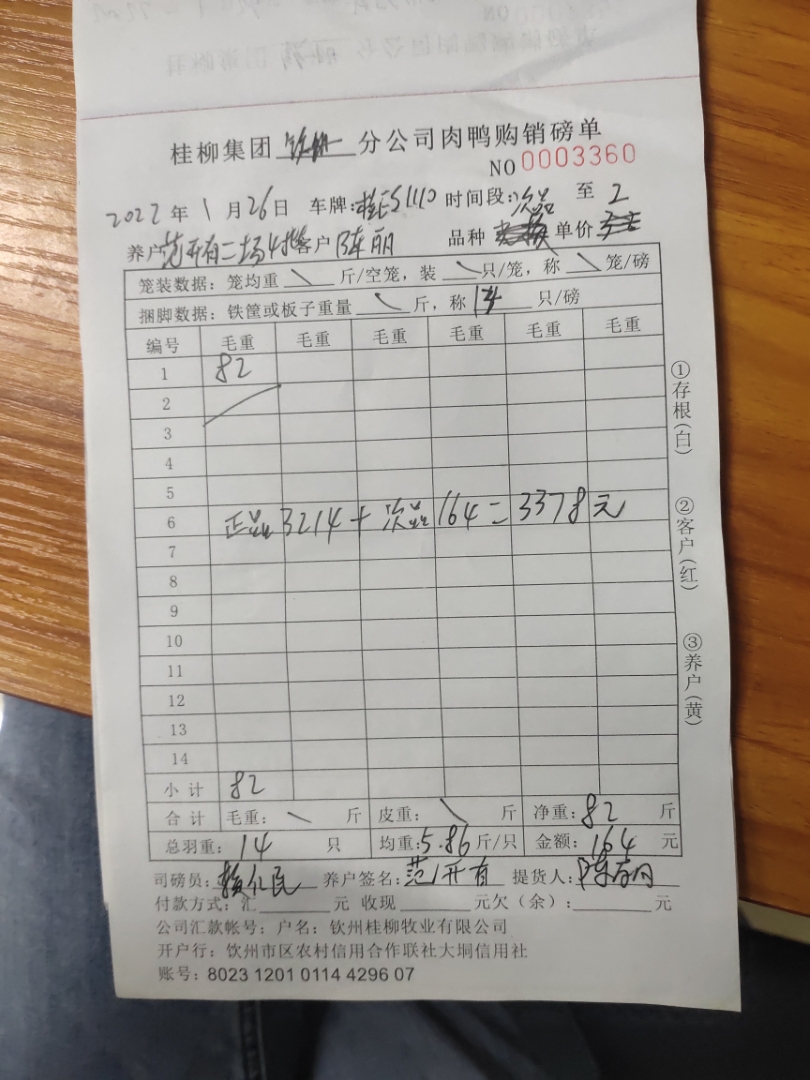 桂柳集团 钦州 分公司肉鸭购销磅单
NO 0003360
2022年1月26日 车牌:桂E51110 时间段:次品 至 2
养户 范开有二场4批 客户 陈丽 品种 单价
笼装数据：笼均重 \ 斤/空笼，装 \ 只/笼，称 \ 笼/磅
捆脚数据：铁筐或板子重量 \ 斤，称 14 只/磅
编号 毛重 毛重 毛重 毛重 毛重 毛重
1 82
2
3
4
5
6 正品3214+次品164=3378元
7
8
9
10
11
12
13
14
小计 82
合计 毛重： \ 斤 皮重： \ 斤 净重：82 斤
总羽重：14 只 均重:5.86斤/只 金额：164 元
司磅员： 养户签名：范开有 提货人：
付款方式：汇 元 收现 元欠（余）： 元
公司汇款帐号：户名：钦州桂柳牧业有限公司
开户行：钦州市区农村信用合作联社大垌信用社
账号：8023 1201 0114 4296 07
①存根(白)
②客户(红)
③养户(黄)